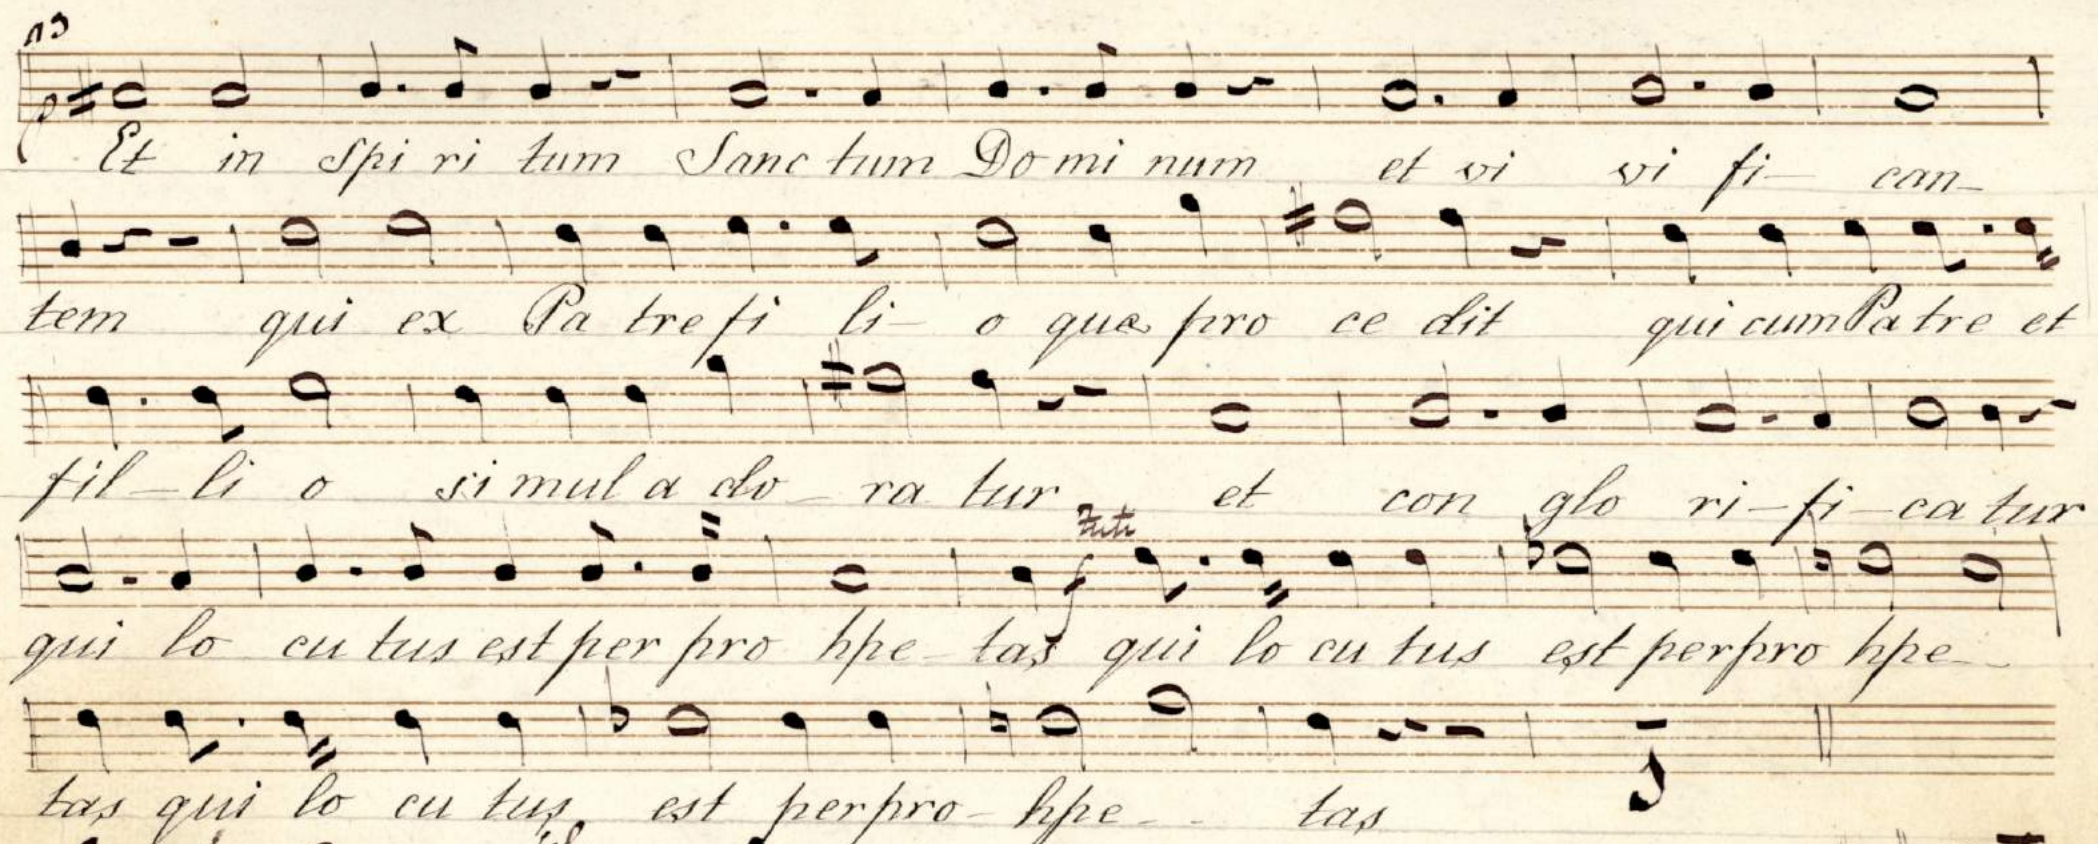 Et in Spi ri tum Sanc tum Do mi num et vi vi fi- can-
tem qui ex Pa tre fi li- o que pro ce dit qui cum Pa tre et
fil-li o si mul a do- ra tur et con glo ri-fi-ca tur
Tuti
qui lo cu tus est per pro hpe- tas qui lo cu tus est per pro hpe-
tas qui lo cu tus est per pro- hpe- tas